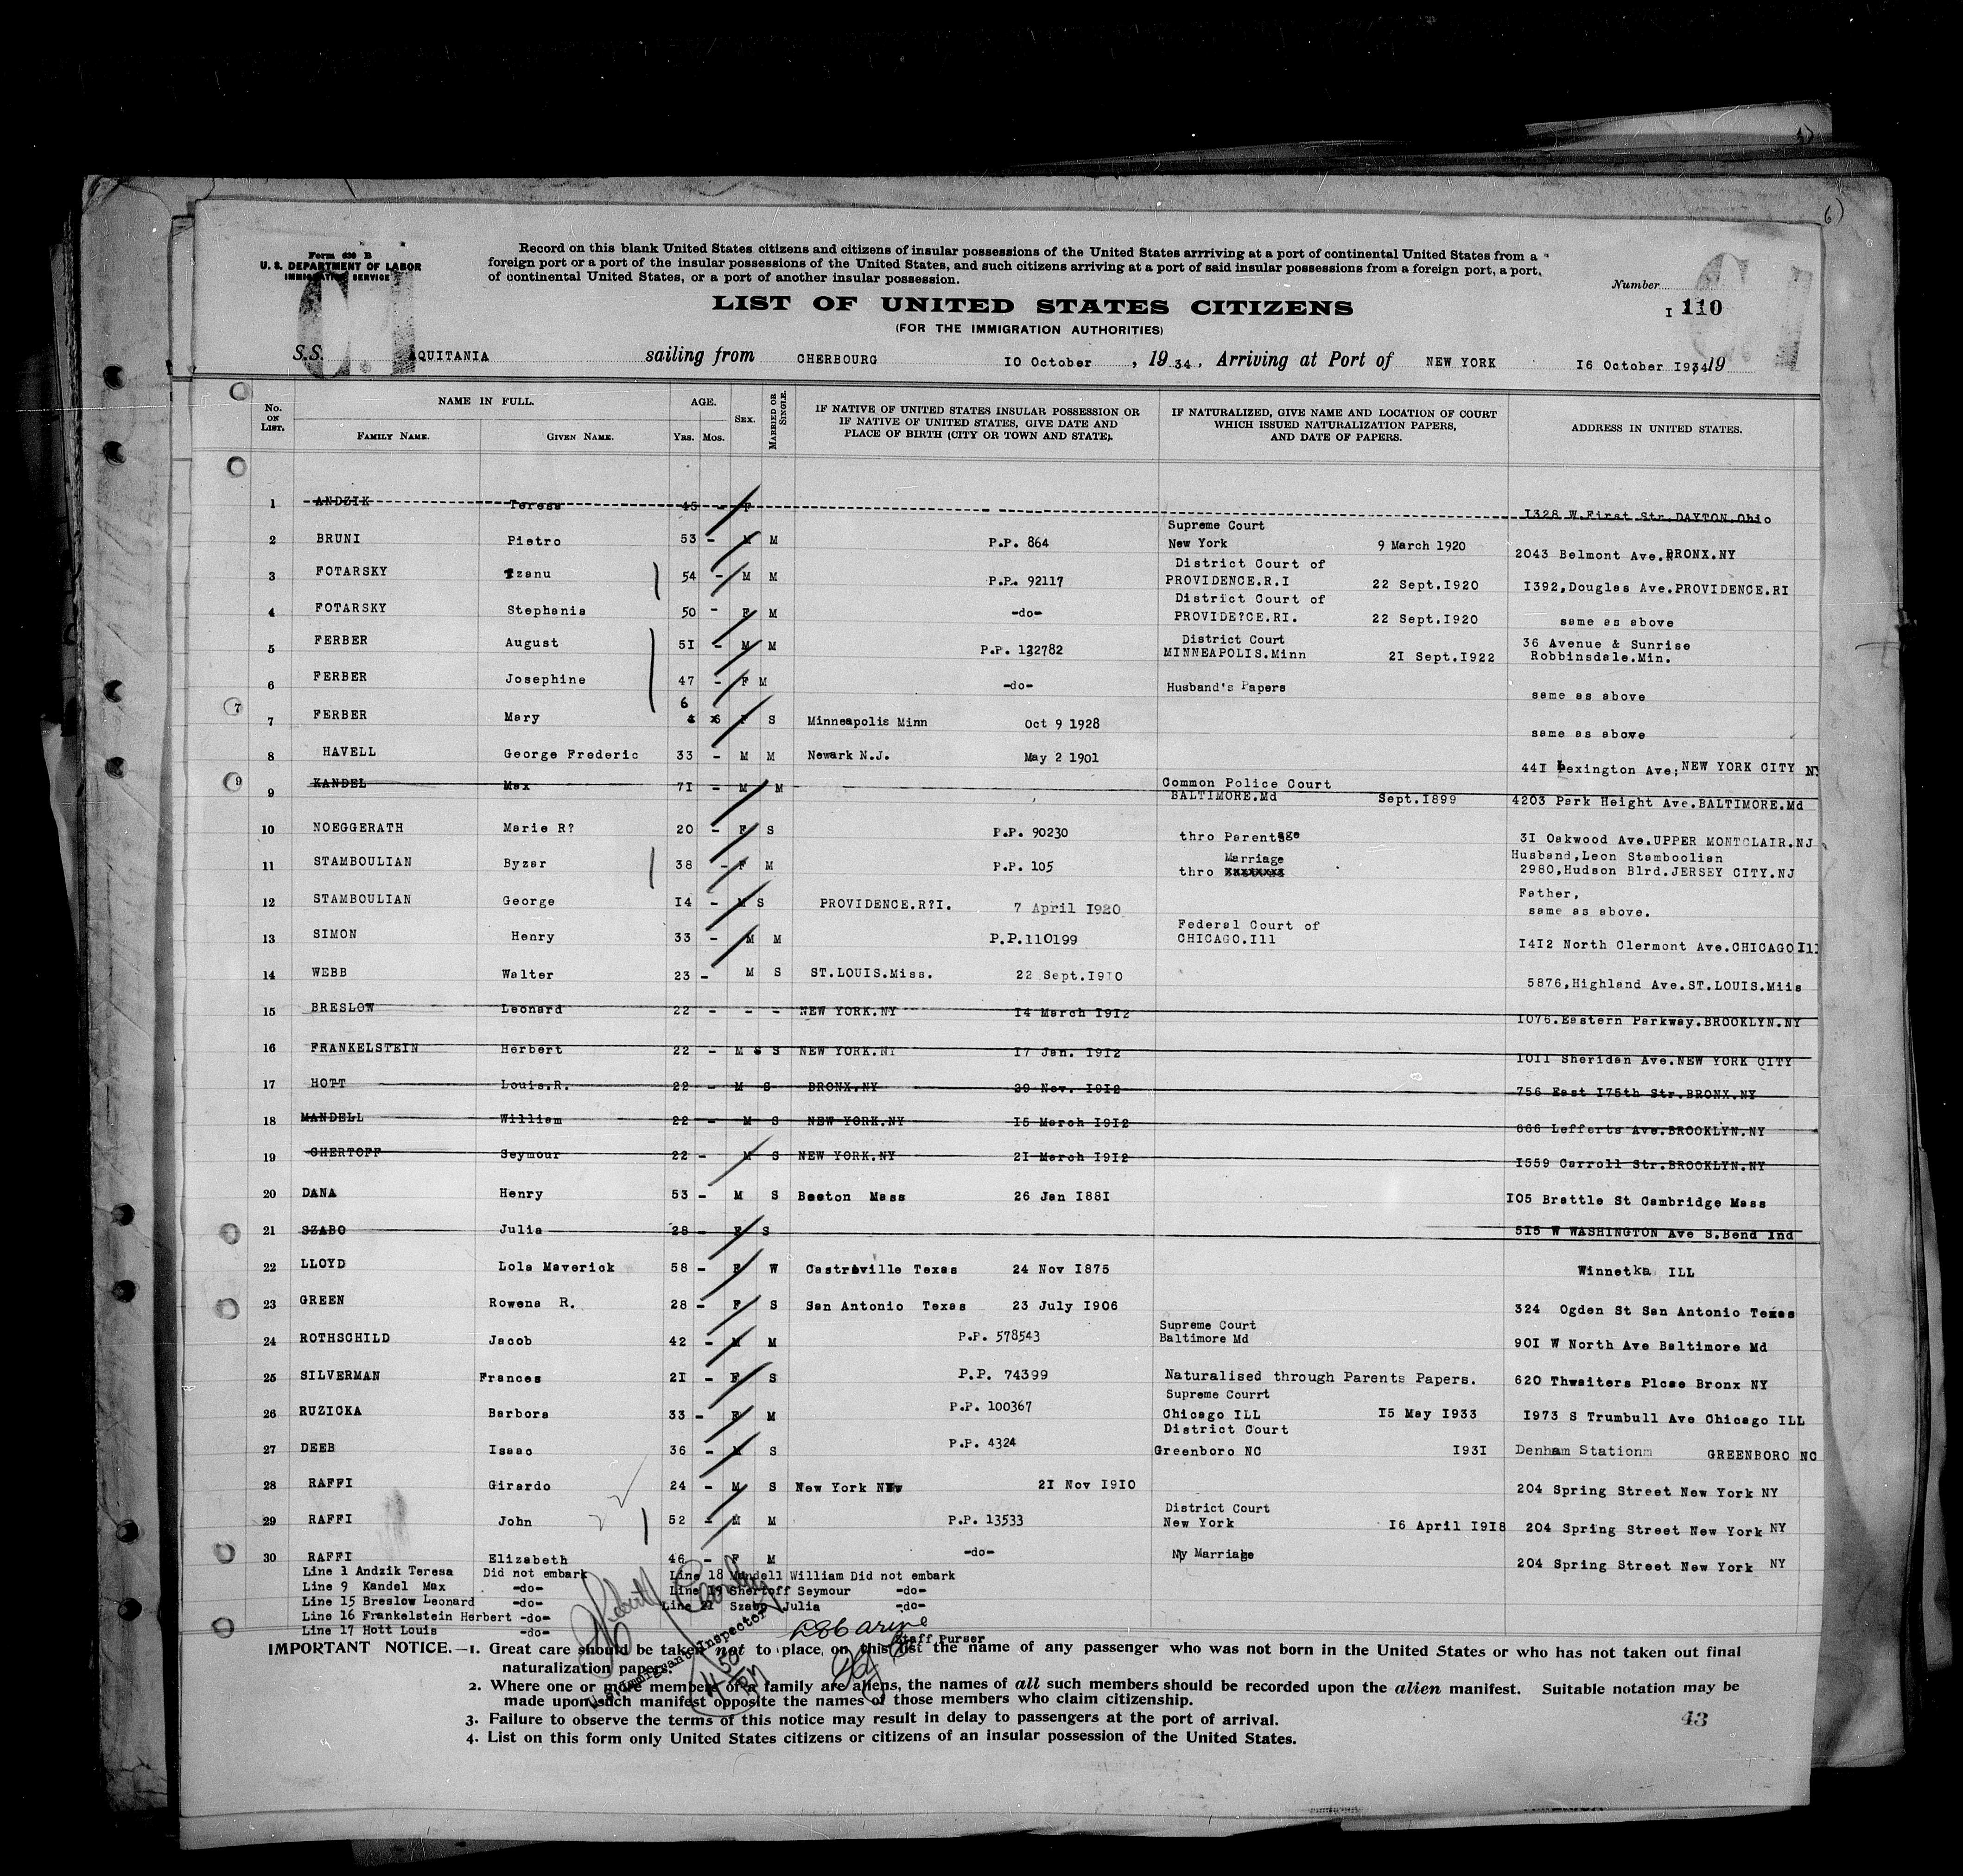 Form 630 B
U. S. DEPARTMENT OF LABOR
IMMIGRATION SERVICE
Record on this blank United States citizens and citizens of insular possessions of the United States arrriving at a port of continental United States from a
foreign port or a port of the insular possessions of the United States, and such citizens arriving at a port of said insular possessions from a foreign port, a port,
of continental United States, or a port of another insular possession.
Number
LIST OF UNITED STATES CITIZENS
I 110
(FOR THE IMMIGRATION AUTHORITIES)
S.S. AQUITANIA sailing from CHERBOURG IO October , 19 34 , Arriving at Port of NEW YORK I6 October I934 19
No. ON LIST.
NAME IN FULL.
FAMILY NAME. GIVEN NAME.
AGE.
Yrs. Mos.
SEX.
MARRIED OR SINGLE.
IF NATIVE OF UNITED STATES INSULAR POSSESSION OR
IF NATIVE OF UNITED STATES, GIVE DATE AND
PLACE OF BIRTH (CITY OR TOWN AND STATE).
IF NATURALIZED, GIVE NAME AND LOCATION OF COURT
WHICH ISSUED NATURALIZATION PAPERS,
AND DATE OF PAPERS.
ADDRESS IN UNITED STATES.
1 ANDZIK Teresa 45 - F - I328 W.First Str.DAYTON.Ohio
Supreme Court
2 BRUNI Pietro 53 - M M P.P. 864 New York 9 March 1920 2043 Belmont Ave.BRONX.NY
District Court of
3 FOTARSKY Izanu 54 - M M P.P. 92117 PROVIDENCE.R.I 22 Sept.I920 I392,Douglas Ave.PROVIDENCE.RI
District Court of
4 FOTARSKY Stephania 50 - F M -do- PROVIDE?CE.RI. 22 Sept.I920 same as above
District Court 36 Avenue & Sunrise
5 FERBER August 5I - M M P.P. 132782 MINNEAPOLIS.Minn 2I Sept.I922 Robbinsdale.Min.
6 FERBER Josephine 47 - F M -do- Husband's Papers same as above
6
7 7 FERBER Mary F S Minneapolis Minn Oct 9 1928 same as above
8 HAVELL George Frederic 33 - M M Newark N.J. May 2 1901 44I Lexington Ave; NEW YORK CITY NY
Common Police Court
9 9 KANDEL Max 7I - M M BALTIMORE.Md Sept.I899 4203 Park Height Ave.BALTIMORE.Md
10 NOEGGERATH Marie R? 20 - F S P.P. 90230 thro Parentage 3I Oakwood Ave.UPPER MONTCLAIR.NJ
Marriage Husband,Leon Stamboolian
11 STAMBOULIAN Byzar 38 - F M P.P. 105 thro xxxxxxxx 2980,Hudson Blrd.JERSEY CITY.NJ
Father,
12 STAMBOULIAN George I4 - M S PROVIDENCE.R?I. 7 April I920 same as above.
Federal Court of
13 SIMON Henry 33 - M M P.P.110199 CHICAGO.Ill I4I2 North Clermont Ave.CHICAGO Ill
14 WEBB Walter 23 - M S ST.LOUIS.Miss. 22 Sept.I910 5876,Highland Ave.ST.LOUIS.Miis
15 BRESLOW Leonard 22 - - - NEW YORK.NY I4 March I9I2 I076.Eastern Parkway.BROOKLYN.NY
16 FRANKELSTEIN Herbert 22 - M S S NEW YORK.NY I7 Jan. I9I2 I0II Sheridan Ave.NEW YORK CITY
17 HOTT Louis.R. 22 - M S BRONX.NY 29 Nov. I9I2 756 East I75th Str.BRONX.NY
18 MANDELL William 22 - M S NEW YORK.NY I5 March I9I2 666 Lefferts Ave.BROOKLYN.NY
19 GHERTOFF Seymour 22 - M S NEW YORK.NY 2I March I9I2 I559 Carroll Str.BROOKLYN.NY
20 DANA Henry 53 - M S Boston Mass 26 Jan I88I I05 Brattle St Cambridge Mass
21 SZABO Julia 28 - F S 5I5 W WASHINGTON Ave S.Bend Ind
22 LLOYD Lola Maverick 58 - F W Castroville Texas 24 Nov I875 Winnetka ILL
23 GREEN Rowena R. 28 - F S San Antonio Texas 23 July I906 324 Ogden St San Antonio Texas
Supreme Court
24 ROTHSCHILD Jacob 42 - M M P.P. 578543 Baltimore Md 90I W North Ave Baltimore Md
25 SILVERMAN Frances 2I - F S P.P. 74399 Naturalised through Parents Papers. 620 Thwaiters Plcae Bronx NY
Supreme Courrt
26 RUZICKA Barbora 33 - F M P.P. 100367 Chicago ILL I5 May I933 I973 S Trumbull Ave Chicago ILL
District Court
27 DEEB Isaac 36 - M S P.P. 4324 Greenboro NC I93I Denham Stationm GREENBORO NC
28 RAFFI Girardo 24 - M S New York 2I Nov I9I0 204 Spring Street New York NY
District Court
29 RAFFI John 52 - M M P.P. 13533 New York I6 April I9I8 204 Spring Street New York NY
30 RAFFI Elizabeth 46 - F M -do- Marriage 204 Spring Street New York NY
Line 1 Andzik Teresa Did not embark Line 18 Mandell William Did not embark
Line 9 Kandel Max -do- Line 19 Shertoff Seymour -do-
Line 15 Breslow Leonard -do- Line 21 Szabo Julia -do-
Line 16 Frankelstein Herbert -do-
Line 17 Hott Louis -do-
Staff Purser
U.S. Immigrant Inspector
IMPORTANT NOTICE.—1. Great care should be taken not to place on this list the name of any passenger who was not born in the United States or who has not taken out final
naturalization papers.
2. Where one or more members of a family are aliens, the names of all such members should be recorded upon the alien manifest. Suitable notation may be
made upon such manifest opposite the names of those members who claim citizenship.
3. Failure to observe the terms of this notice may result in delay to passengers at the port of arrival.
4. List on this form only United States citizens or citizens of an insular possession of the United States.
43